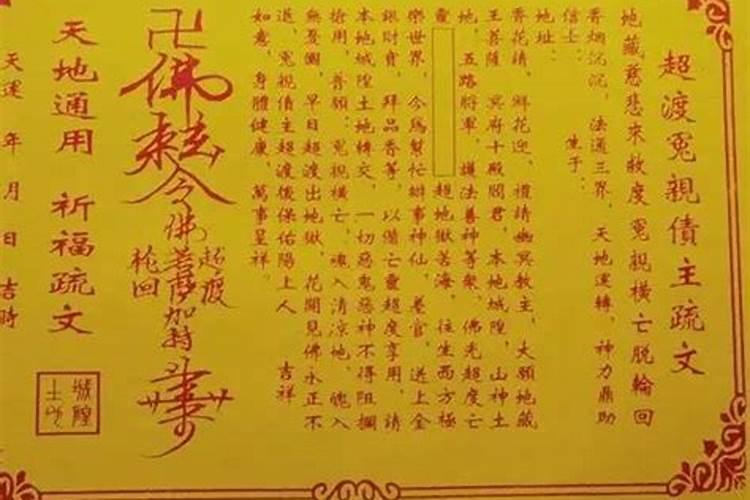 超渡冤親債主疏文
地藏慈悲來救度 冤親橫亡脫輪回
香烟沉沉，法通三界，天地運轉，神力鼎助
信士： 生于：
地址：
香花請，鮮花迎，禮請幽冥教主，大願地藏
王菩薩 冥府十殿閻君，本地城隍，山神土
地，五路將軍，護法善神等衆，佛光超度亡
靈 超地獄苦海，往生西方極
樂世界，今爲幫忙辦事神仙，差官，送上金
銀財寶，拜品香等，以備亡靈超度享用，請
本地城隍土地轉交，一切惡鬼惡神不得阻攔
搶用，普願：冤親橫亡，魂入清凉地，魄入
無憂國，早日超渡出地獄，花開見佛永正不
退，冤親債主超渡後保佑陽上人 吉祥
如意，身體健康，萬事呈祥。
卍佛敕令
超渡
佛菩薩加持
輪回
天地通用 祈福疏文
城隍
土地
天運 年 月 日 吉時